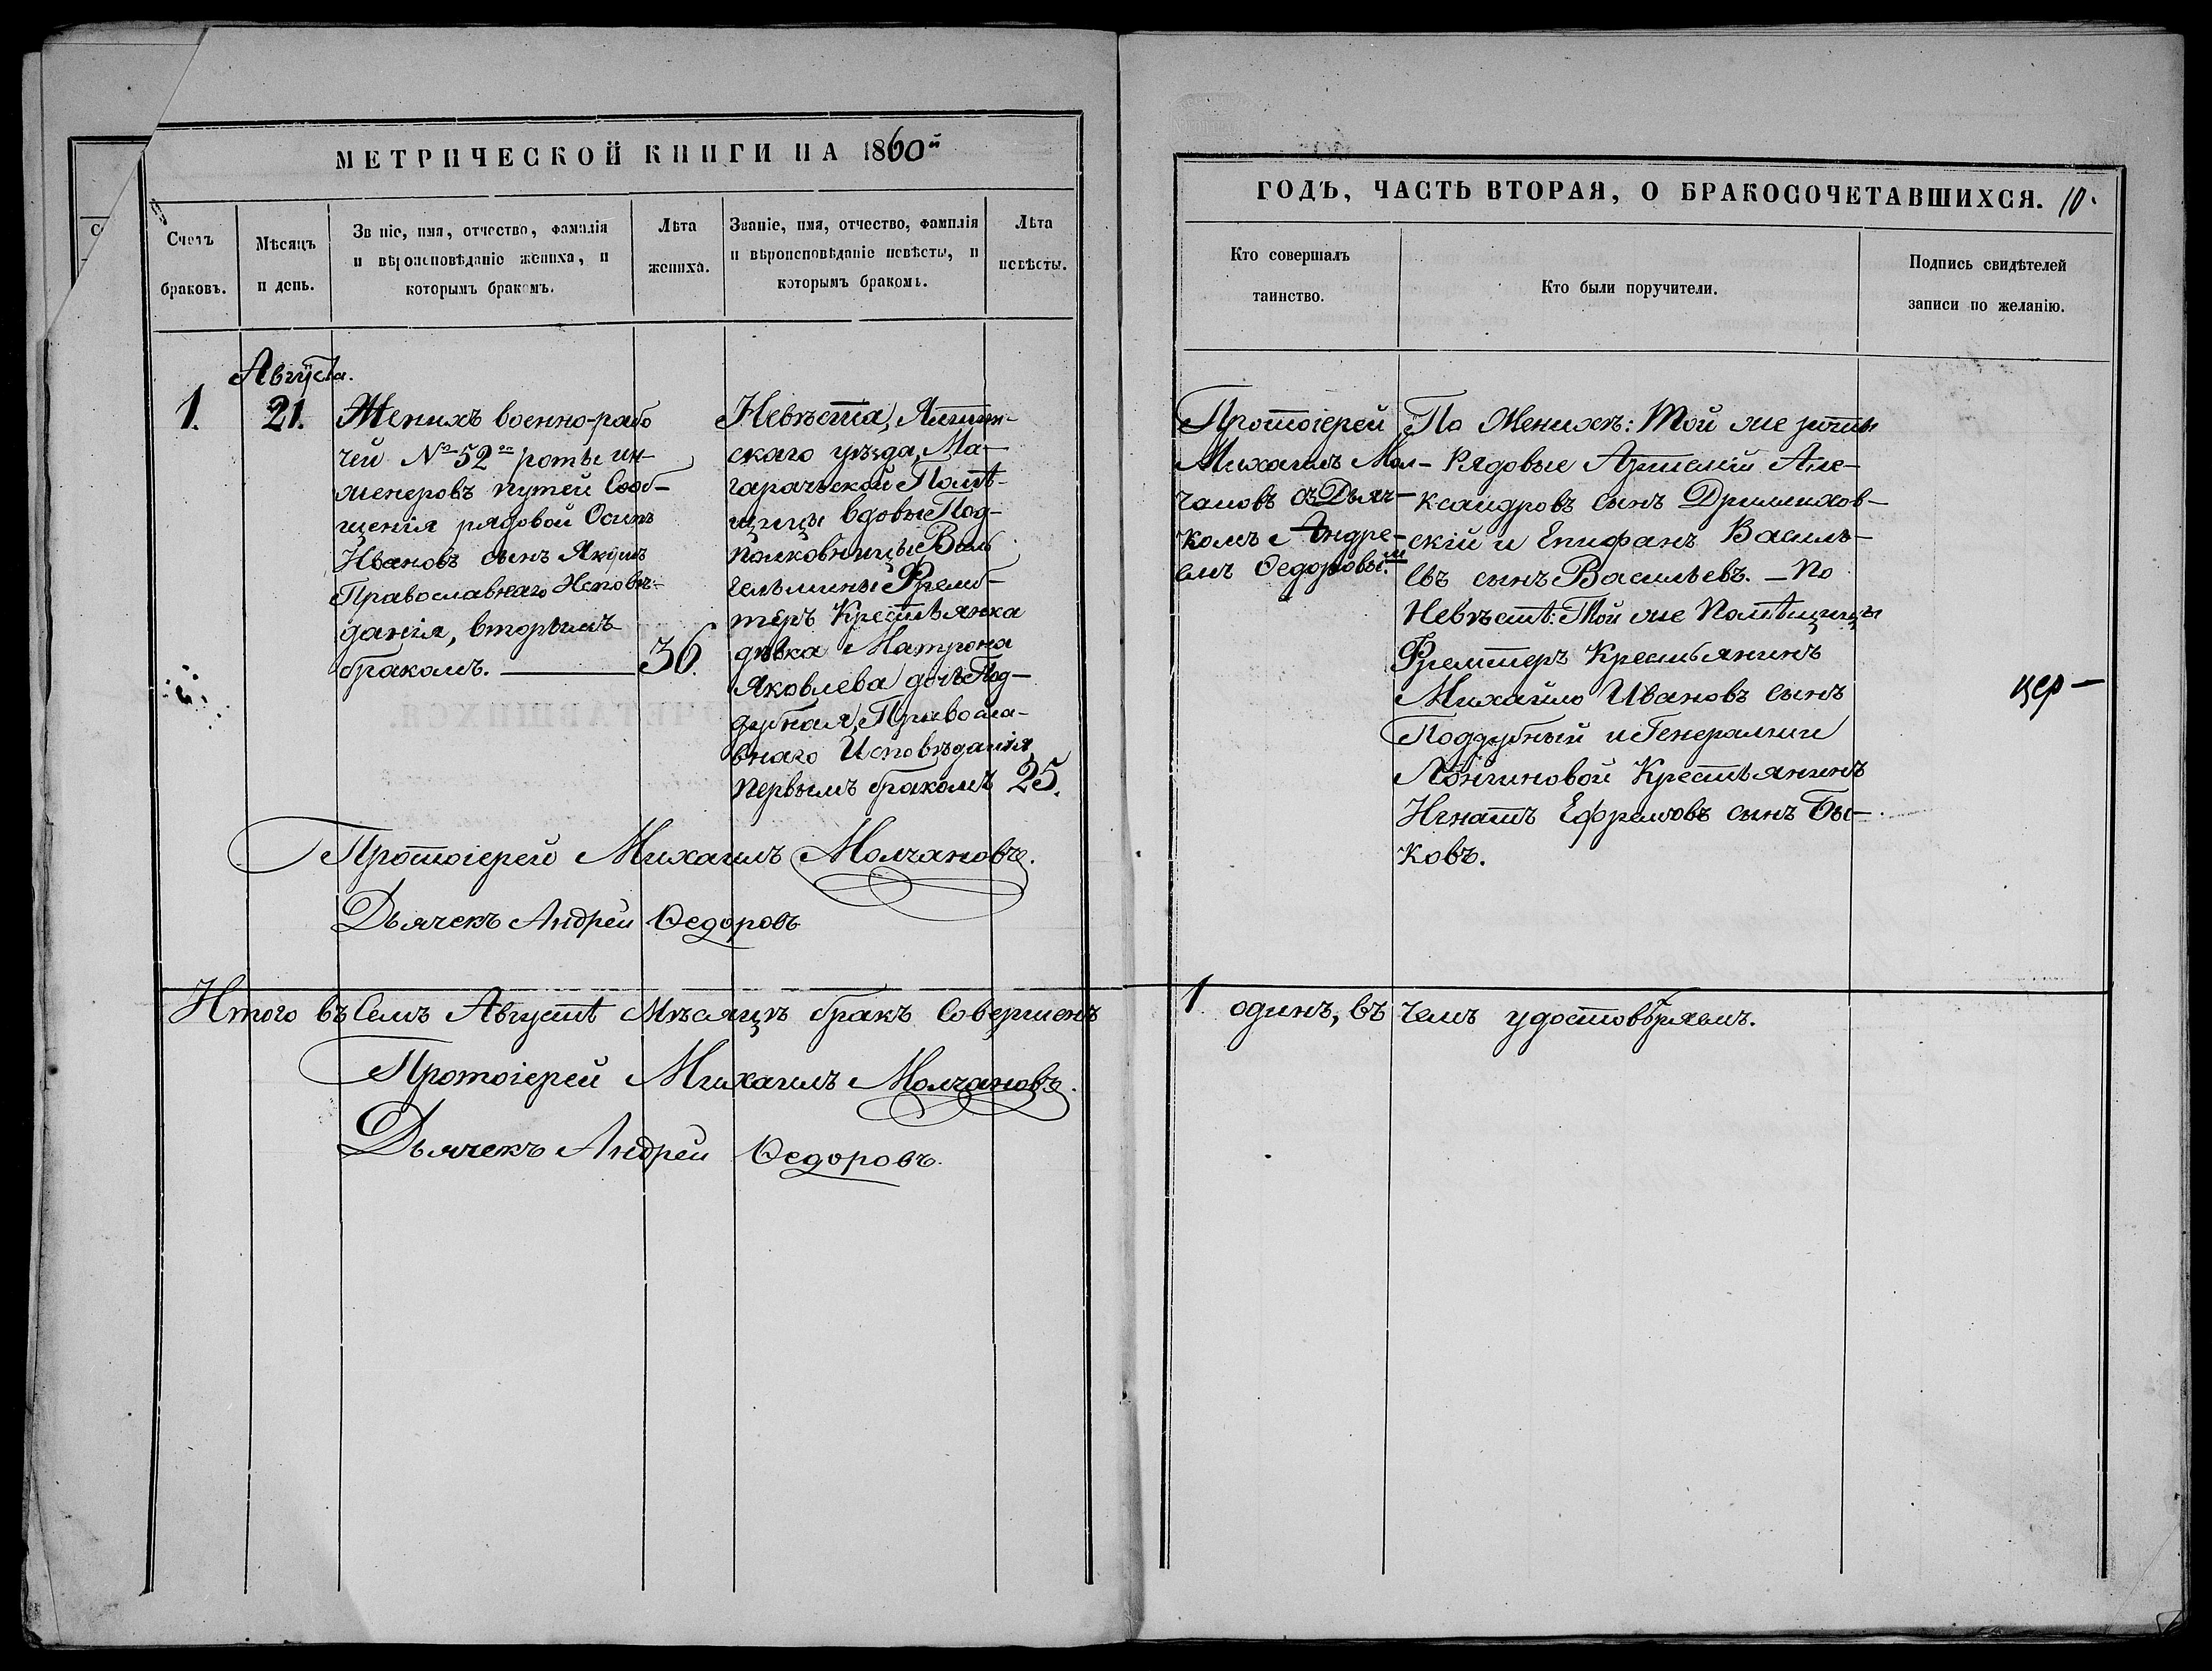 МЕТРИЧЕСКОЙ КНИГИ НА 1860й
Счетъ браковъ.
Мѣсяцъ и день.
Званіе, имя, отчество, фамилія и вѣроисповѣданіе жениха, и которымъ бракомъ.
Лѣта жениха.
Званіе, имя, отчество, фамилія и вѣроисповѣданіе невѣсты, и которымъ бракомъ.
Лѣта невѣсты.
Августа.
1. 21.
Женихъ военно-рабо
чей № 52й роты ин-
женеровъ путей Сооб-
щенія рядовой Осипъ
Ивановъ сынъ Якимъ
Православнаго Исповѣ-
данія, вторымъ
бракомъ. — 36.
Невѣста, Ялтин-
скаго уѣзда, Ма-
гарачьской Помѣ-
щицы вдовы Под-
полковницы Виль
гельмины
Крестьянка
дѣвка Матрона
Яковлева дочь Под-
дубная, Правосла-
внаго Исповѣданія
первымъ бракомъ 25.
Протоіерей Михаилъ Молчановъ.
Дьячекъ Андрей Ѳедоровъ
Итого въ Семъ Августѣ Мѣсяцѣ бракъ Совершенъ
Протоіерей Михаилъ Молчановъ.
Дьячекъ Андрей Ѳедоровъ.
ГОДЪ, ЧАСТЬ ВТОРАЯ, О БРАКОСОЧЕТАВШИХСЯ. 10.
Кто совершалъ таинство.
Кто были поручители.
Подпись свидѣтелей записи по желанію.
Протоіерей
Михаилъ Мол-
чановъ съ Дьяч-
комъ Андре-
емъ Ѳедоровымъ
По Женихѣ: Той же роты
Рядовые Артемій Але-
ксандровъ сынъ
скій и Епифанъ Василь-
евъ сынъ Васильевъ. — По
Невѣстѣ: Той же Помѣщицы
Фремтеръ Крестьянинъ
Михайло Ивановъ сынъ
Поддубный и Генеральши
Лонгиновой Крестьянинъ
Игнатъ Ефремовъ сынъ Бы-
ковъ.
цер-
1. одинъ, въ чемъ удостовѣряемъ.